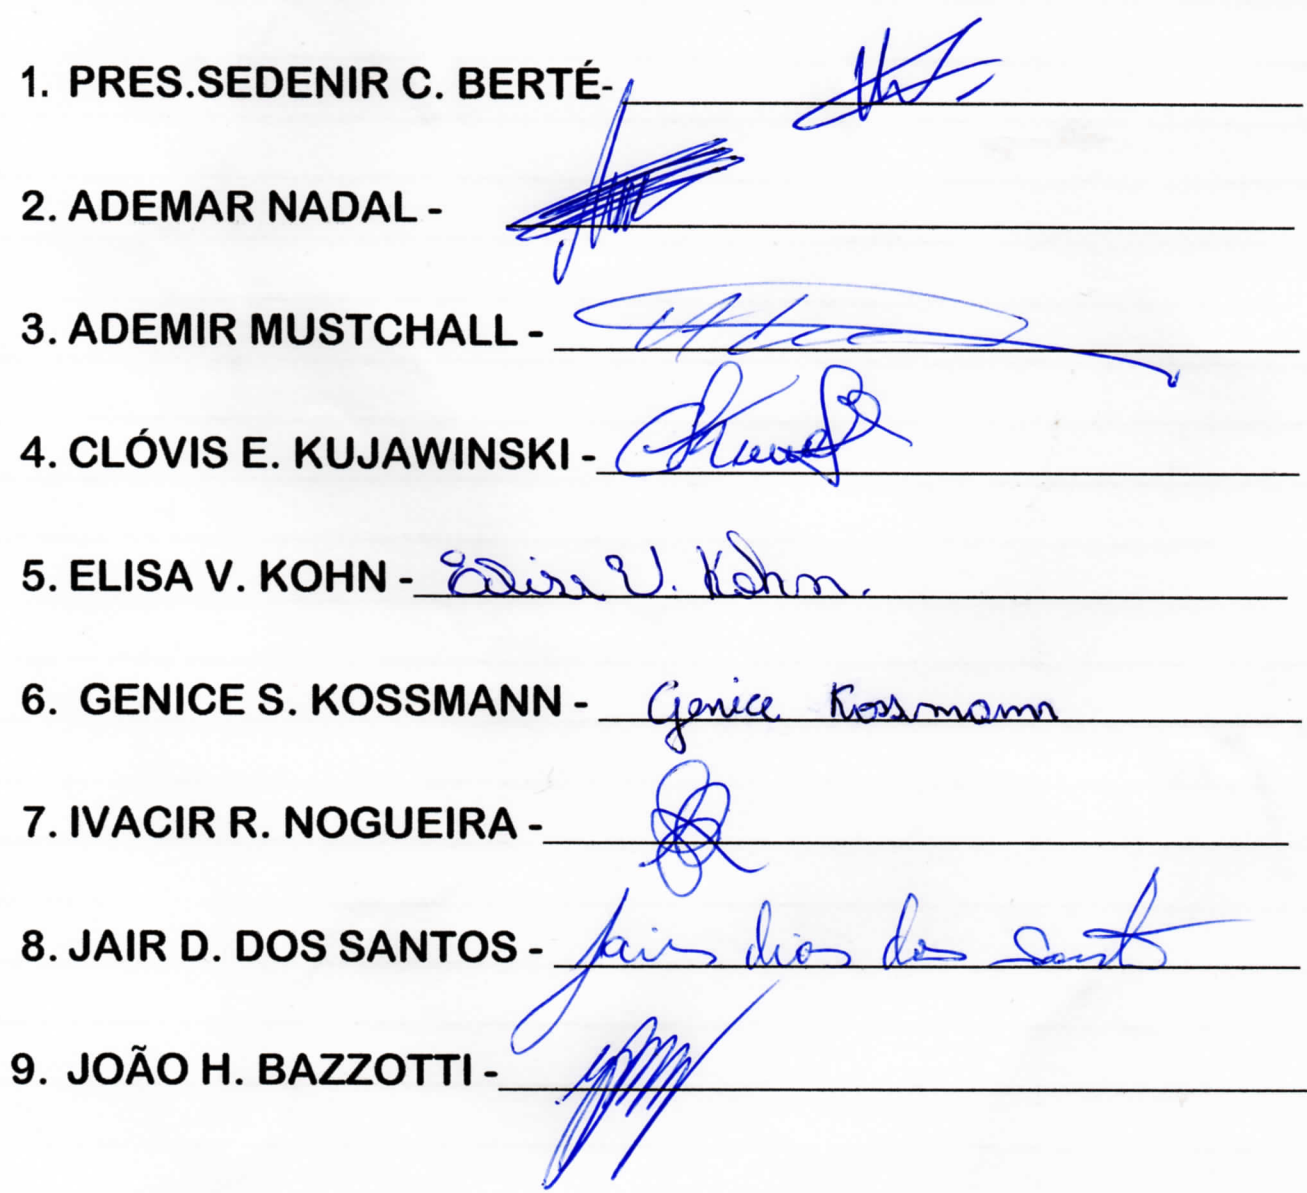 1. PRES.SEDENIR C. BERTÉ-
2. ADEMAR NADAL -
3. ADEMIR MUSTCHALL -
4. CLÓVIS E. KUJAWINSKI -
5. ELISA V. KOHN - Elisa V. Kohn.
6. GENICE S. KOSSMANN - Genice Kossmann
7. IVACIR R. NOGUEIRA -
8. JAIR D. DOS SANTOS - Jair dias dos Santos
9. JOÃO H. BAZZOTTI -